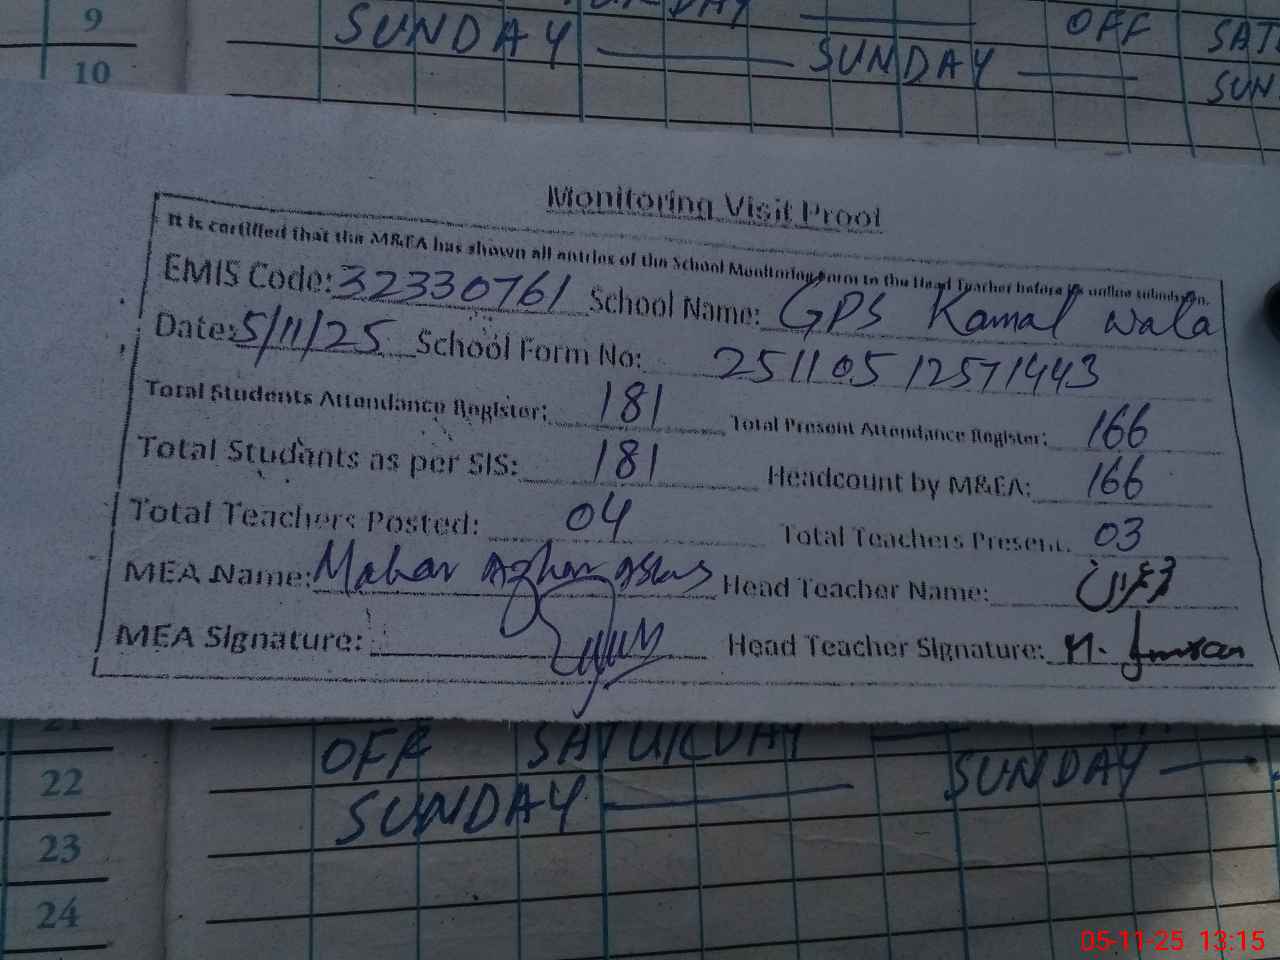 9
SUNDAY SUNDAY OFF SAT
10 SUN
Monitoring Visit Proof
It is certified that the M&EA has shown all entries of the School Monitoring Form to the Head Teacher before its online submission.
EMIS Code: 32330761 School Name: GPS Kamal Wala
Date: 5/11/25 School Form No: 25110512571443
Total Students Attendance Register: 181 Total Present Attendance Register: 166
Total Students as per SIS: 181 Headcount by M&EA: 166
Total Teachers Posted: 04 Total Teachers Present: 03
MEA Name: Mahar Azhar Head Teacher Name:
MEA Signature: Head Teacher Signature: M. Imran
21
OFF SATURDAY
22 SUNDAY
SUNDAY
23
24
05-11-25 13:15